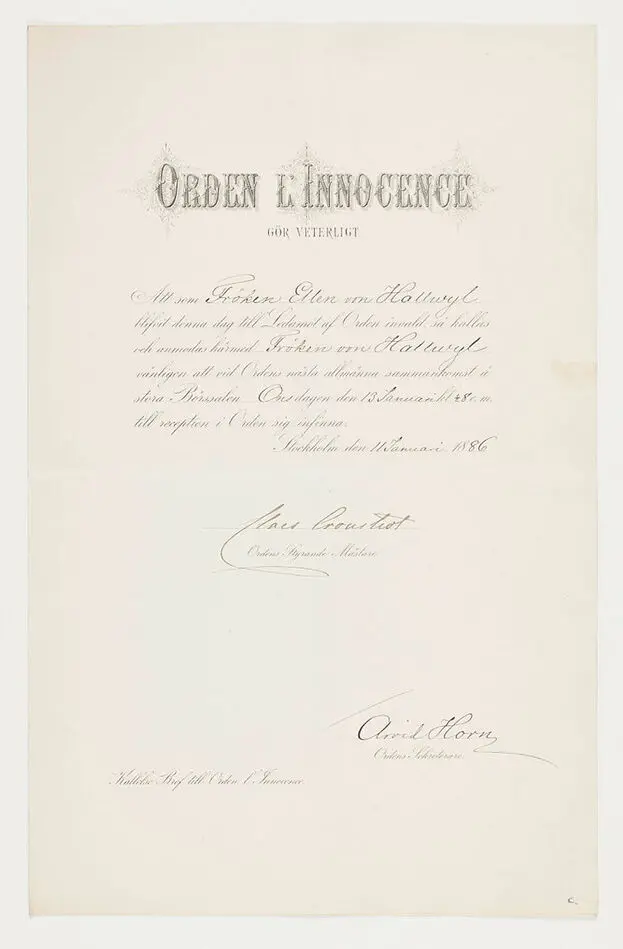 ORDEN L'INNOCENCE
GÖR VETERLIGT
Att som Fröken Ellen von Hallwyl
blifvit denna dag till Ledamot af Orden invald så kallas
och anmodas härmed Fröken von Hallwyl
vänligen att vid Ordens nästa allmänna sammankomst i
stora Börssalen Onsdagen den 13 Januari kl. 8 e.m.
till reception i Orden sig infinna.
Stockholm den 11 Januari 1886
Claes Cronstedt
Ordens Styrande Mästare.
Arvid Horn
Ordens Sekreterare.
Kallelse Bref till Orden l'Innocence